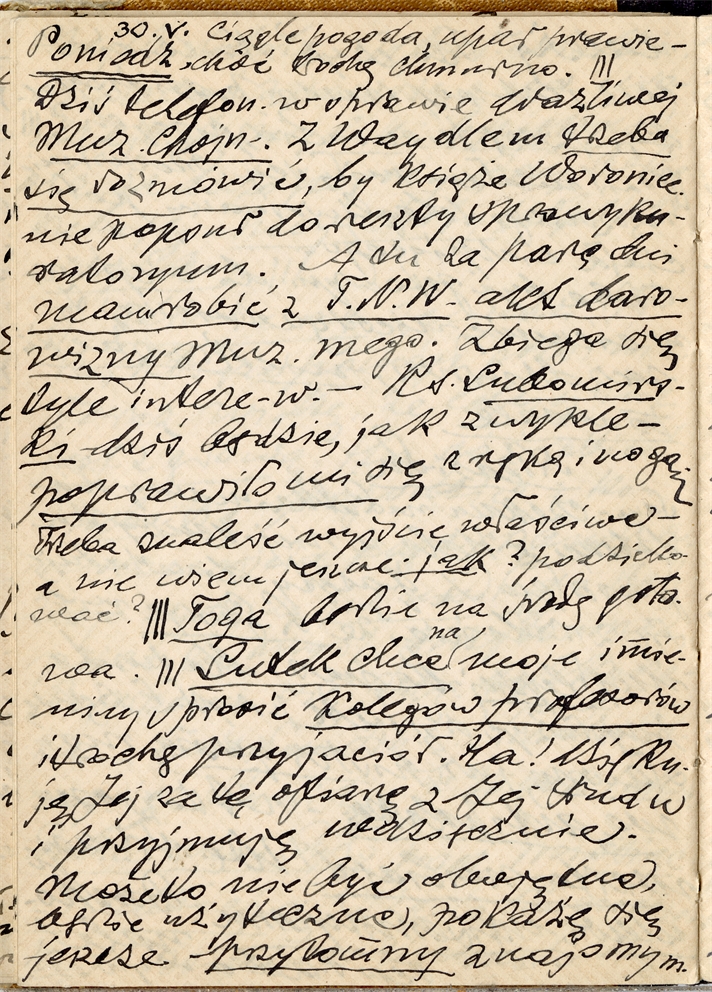 30. V. Ciągle pogoda, upał prawie-
Poniedz. choć trochę chmurno. |||
Dziś telefon. w sprawie drażliwej
Muz. Chojn-. Z Waydlem trzeba
się rozmówić, by Książe Woroniec.
nie popsuł do reszty sprawy ku-
ratoryum. A tu za parę dni
mam robić z T. N. W. akt daro-
wizny Muz. mego. Zbiega się
tyle intere-w. — Ks. Lubomirs-
ki dziś będzie, jak zwykle —
poprawiło mi się z ręką i nogą,
Trzeba znaleść wyjście właściwe —
a nie wiem jeszcze jak? podzięko-
wać? ||| Toga będzie na środę goto-
wa. ||| Lutek chce na moje imie-
niny uprosić Kolegów profesorów
i trochę przyjaciół. Ha! Dzięku-
ję Jej za tę ofiarę z Jej trudu
i przyjmuję wdzięcznie.
Może to nie być obojętne,
będzie użyteczne, pokażę się
jeszcze przytomny znajomym.